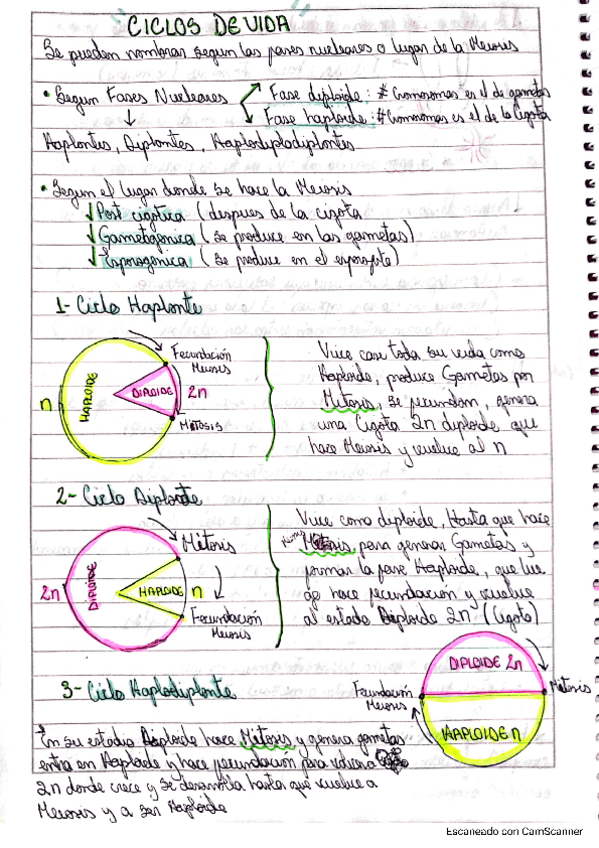 CICLOS DE VIDA
Se pueden nombrar segun las fases nucleares o lugar de la Meiosis
• Segun Fases Nucleares
Fase diploide: # Cromosomas es el de gametos
Fase haploide: # Cromosomas es el de la Cigota
Haplontes, Diplontes, Haplodiplodiplontes
• Segun el lugar donde se hace la Meiosis
Post cigotica (despues de la cigota
Gametogenica (se produce en las gametas)
Esporogenica (se produce en el esporofito)
1- Ciclo Haplonte
Fecundación
Meiosis
HAPLOIDE
DIPLOIDE
n
2n
MITOSIS
Vive casi toda su vida como
Haploide, produce Gametas por
Mitosis, se fecundan, genera
una Cigota 2n diploide, que
hace Meiosis y vuelve al n
2- Ciclo Diplonte
Mitosis
DIPLOIDE
HAPLOIDE
2n
n
Fecundación
Meiosis
Vive como diploide, Hasta que hace
Meiosis, para generar Gametas y
formar la fase Haploide, que lue
go hace fecundacion y vuelve
al estado Diploide 2n (Cigoto)
3- Ciclo Haplodiplonte
DIPLOIDE 2n
HAPLOIDE n
Fecundación
Meiosis
Mitosis
En su estadio Haploide hace Mitosis y genera gametas
entra en Haploide y hace fecundacion para volver a
2n donde crece y se desarrolla hasta que vuelve a
Meiosis y a ser Haploide
Escaneado con CamScanner